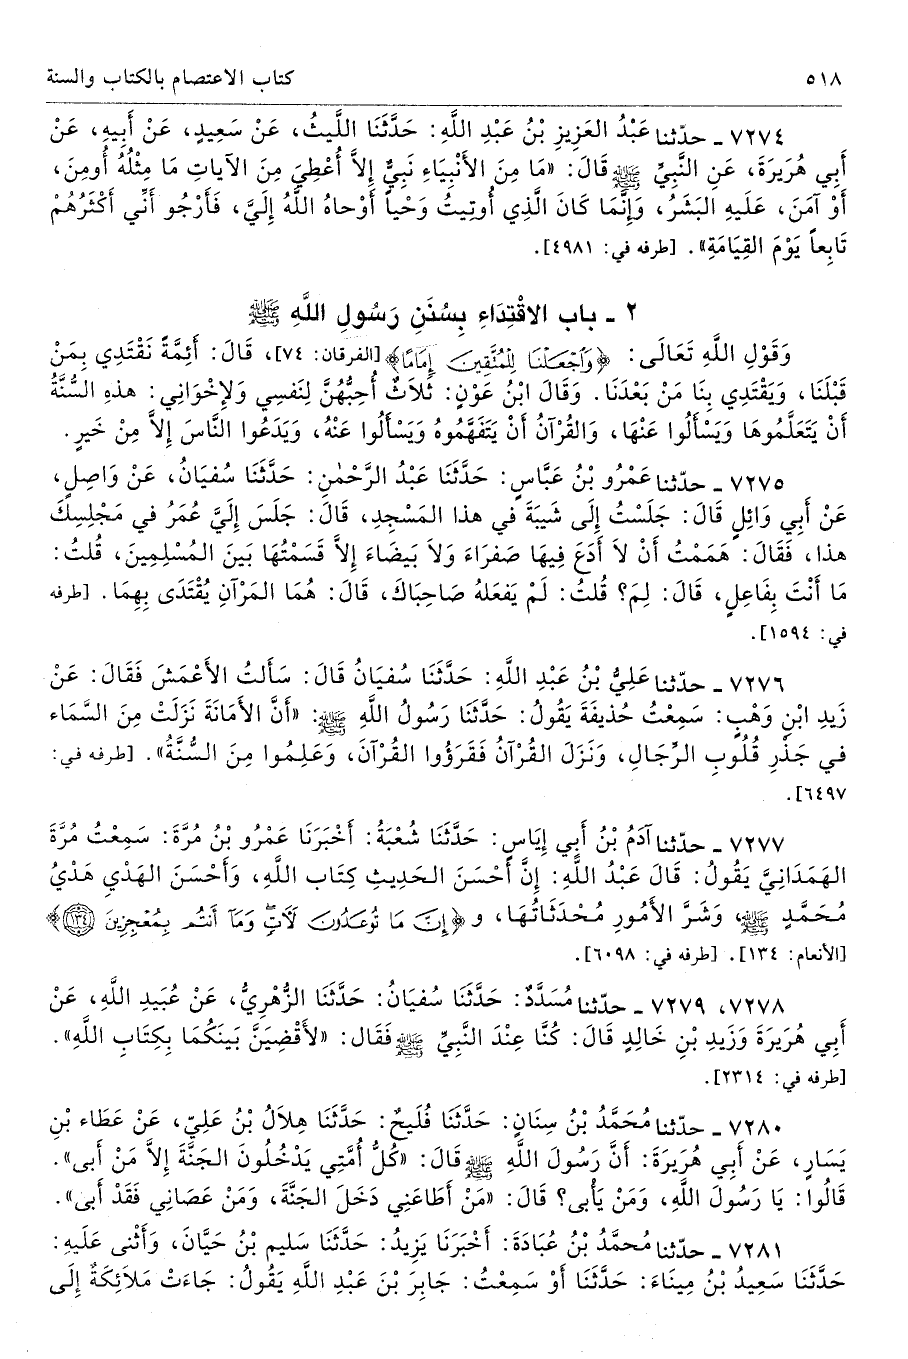 ٥١٨ كتاب الاعتصام بالكتاب والسنة
٧٢٧٤ ـ حدّثنا عَبْدُ العَزِيزِ بْنُ عَبْدِ اللَّهِ: حَدَّثَنَا اللَّيثُ، عَنْ سَعِيدٍ، عَنْ أَبِيهِ، عَنْ
أَبِي هُرَيرَةَ، عَنِ النَّبِيِّ ﷺ قَالَ: «مَا مِنَ الأَنْبِيَاءِ نَبِيٌّ إِلاَّ أُعْطِيَ مِنَ الآيَاتِ مَا مِثْلُهُ أُومِنَ،
أَوْ آمَنَ، عَلَيهِ البَشَرُ، وَإِنَّمَا كَانَ الَّذِي أُوتِيتُ وَحْياً أَوْحاهُ اللَّهُ إِلَيَّ، فَأَرْجُو أَنِّي أَكْثَرُهُمْ
تَابِعاً يَوْمَ القِيَامَةِ». [طرفه في: ٤٩٨١].
٢ ـ باب الاقْتِدَاءِ بِسُنَنِ رَسُولِ اللَّهِ ﷺ
وَقَوْلِ اللَّهِ تَعَالَى: ﴿وَاجْعَلْنَا لِلْمُتَّقِينَ إِمَامًا﴾ [الفرقان: ٧٤]، قَالَ: أَئِمَّةً نَقْتَدِي بِمَنْ
قَبْلَنَا، وَيَقْتَدِي بِنَا مَنْ بَعْدَنَا. وَقَالَ ابْنُ عَوْنٍ: ثَلاَثٌ أُحِبُّهُنَّ لِنَفْسِي وَلإِخْوَانِي: هذهِ السُّنَّةُ
أَنْ يَتَعَلَّمُوهَا وَيَسْأَلُوا عَنْهَا، وَالقُرْآنُ أَنْ يَتَفَهَّمُوهُ وَيَسْأَلُوا عَنْهُ، وَيَدَعُوا النَّاسَ إِلاَّ مِنْ خَيرٍ.
٧٢٧٥ ـ حدّثنا عَمْرُو بْنُ عَبَّاسٍ: حَدَّثَنَا عَبْدُ الرَّحْمٰنِ: حَدَّثَنَا سُفيَانُ، عَنْ وَاصِلٍ،
عَنْ أَبِي وَائِلٍ قَالَ: جَلَسْتُ إِلَى شَيبَةَ في هذا المَسْجِدِ، قَالَ: جَلَسَ إِلَيَّ عُمَرُ في مَجْلِسِكَ
هذا، فَقَالَ: هَمَمْتُ أَنْ لاَ أَدَعَ فِيهَا صَفرَاءَ وَلاَ بَيضَاءَ إِلاَّ قَسَمْتُهَا بَينَ المُسْلِمِينَ، قُلتُ:
مَا أَنْتَ بِفَاعِلٍ، قَالَ: لِمَ؟ قُلتُ: لَمْ يَفعَلهُ صَاحِبَاكَ، قَالَ: هُمَا المَرْآنِ يُقْتَدَى بِهِمَا. [طرفه
في: ١٥٩٤].
٧٢٧٦ ـ حدّثنا عَلِيُّ بْنُ عَبْدِ اللَّهِ: حَدَّثَنَا سُفيَانُ قَالَ: سَأَلتُ الأَعْمَشَ فَقَالَ: عَنْ
زَيدِ ابْنِ وَهْبٍ: سَمِعْتُ حُذَيفَةَ يَقُولُ: حَدَّثَنَا رَسُولُ اللَّهِ ﷺ: «أَنَّ الأَمَانَةَ نَزَلَتْ مِنَ السَّمَاءِ
في جَذْرِ قُلُوبِ الرِّجَالِ، وَنَزَلَ القُرْآنُ فَقَرَؤُوا القُرْآنَ، وَعَلِمُوا مِنَ السُّنَّةِ». [طرفه في:
٦٤٩٧].
٧٢٧٧ ـ حدّثنا آدَمُ بْنُ أَبِي إِيَاسٍ: حَدَّثَنَا شُعْبَةُ: أَخْبَرَنَا عَمْرُو بْنُ مُرَّةَ: سَمِعْتُ مُرَّةَ
الهَمْدَانِيَّ يَقُولُ: قَالَ عَبْدُ اللَّهِ: إِنَّ أَحْسَنَ الحَدِيثِ كِتَابُ اللَّهِ، وَأَحْسَنَ الهَدْيِ هَدْيُ
مُحَمَّدٍ ﷺ، وَشَرَّ الأُمُورِ مُحْدَثَاتُهَا، و ﴿إِنَّ مَا تُوعَدُونَ لَآتٍ وَمَا أَنتُم بِمُعْجِزِينَ ﴿١٣٤﴾﴾
[الأنعام: ١٣٤]. [طرفه في: ٦٠٩٨].
٧٢٧٨، ٧٢٧٩ ـ حدّثنا مُسَدَّدٌ: حَدَّثَنَا سُفيَانُ: حَدَّثَنَا الزُّهْرِيُّ، عَنْ عُبَيدِ اللَّهِ، عَنْ
أَبِي هُرَيرَةَ وَزَيدِ بْنِ خَالِدٍ قَالَ: كُنَّا عِنْدَ النَّبِيِّ ﷺ فَقَال: «لأَقْضِيَنَّ بَينَكُمَا بِكِتَابِ اللَّهِ».
[طرفه في: ٢٣١٤].
٧٢٨٠ ـ حدّثنا مُحَمَّدُ بْنُ سِنَانٍ: حَدَّثَنَا فُلَيحٌ: حَدَّثَنَا هِلاَلُ بْنُ عَلِيّ، عَنْ عَطَاءِ بْنِ
يَسَارٍ، عَنْ أَبِي هُرَيرَةَ: أَنَّ رَسُولَ اللَّهِ ﷺ قَالَ: «كُلُّ أُمَّتِي يَدْخُلُونَ الجَنَّةَ إِلاَّ مَنْ أَبى».
قَالُوا: يَا رَسُولَ اللَّهِ، وَمَنْ يَأْبى؟ قَالَ: «مَنْ أَطَاعَنِي دَخَلَ الجَنَّةَ، وَمَنْ عَصَانِي فَقَدْ أَبى».
٧٢٨١ ـ حدّثنا مُحمَّدُ بْنُ عُبَادَةَ: أَخْبَرَنَا يَزِيدُ: حَدَّثَنَا سَلِيم بْنُ حَيَّانَ، وَأَثْنى عَلَيهِ:
حَدَّثَنَا سَعِيدُ بْنُ مِينَاءَ: حَدَّثَنَا أَوْ سَمِعْتُ: جَابِرَ بْنَ عَبْدِ اللَّهِ يَقُولُ: جَاءَتْ مَلاَئِكَةٌ إِلَى